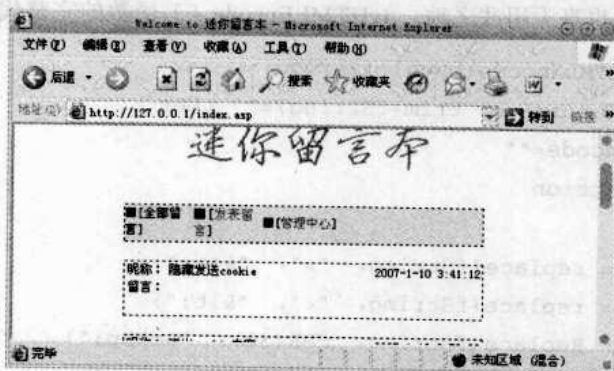 Welcome to 迷你留言本 - Microsoft Internet Explorer
文件(F) 编辑(E) 查看(V) 收藏(A) 工具(T) 帮助(H)
后退 搜索 收藏夹
地址(D) http://127.0.0.1/index.asp 转到 链接 »
迷你留言本
■[全部留言] ■[发表留言] ■[管理中心]
昵称: 隐藏发送cookie 2007-1-10 3:41:12
留言:
完毕 未知区域 (混合)